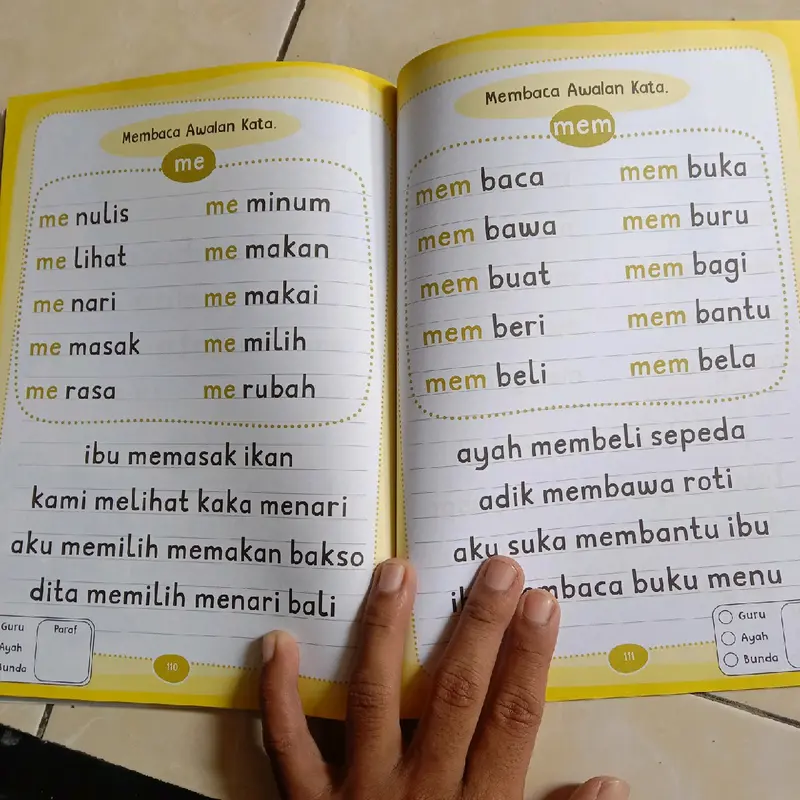 Membaca Awalan Kata.
me
me nulis me minum
me lihat me makan
me nari me makai
me masak me milih
me rasa me rubah
ibu memasak ikan
kami melihat kaka menari
aku memilih memakan bakso
dita memilih menari bali
Guru Paraf
Ayah
Bunda
110
Membaca Awalan Kata.
mem
mem baca mem buka
mem bawa mem buru
mem buat mem bagi
mem beri mem bantu
mem beli mem bela
ayah membeli sepeda
adik membawa roti
aku suka membantu ibu
buku menu
Guru
Ayah
Bunda
111